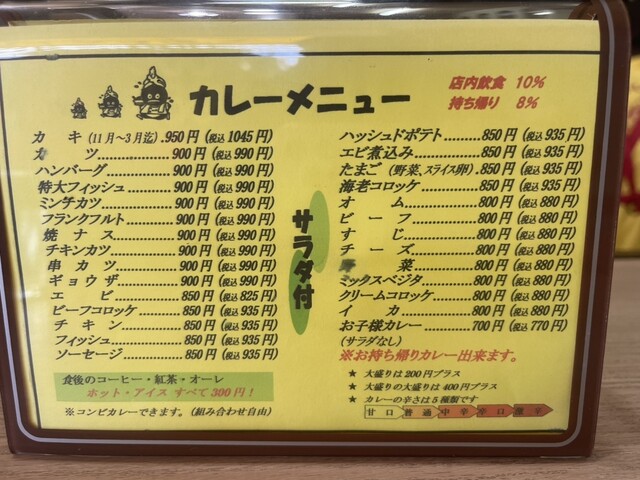 カレーメニュー
店内飲食 10%
持ち帰り 8%
カキ(11月〜3月迄).950円(税込1045円)
カツ............900円(税込990円)
ハンバーグ............900円(税込990円)
特大フィッシュ............900円(税込990円)
ミンチカツ............900円(税込990円)
フランクフルト............900円(税込990円)
焼ナス............900円(税込990円)
チキンカツ............900円(税込990円)
串カツ............900円(税込990円)
ギョウザ............900円(税込990円)
エビ............850円(税込825円)
ビーフコロッケ............850円(税込935円)
チキン............850円(税込935円)
フィッシュ............850円(税込935円)
ソーセージ............850円(税込935円)
食後のコーヒー・紅茶・オーレ
ホット・アイス すべて300円！
※コンビカレーできます。(組み合わせ自由)
サラダ付
ハッシュドポテト............850円(税込935円)
エビ煮込み............850円(税込935円)
たまご(野菜、スライス卵).850円(税込935円)
海老コロッケ............850円(税込935円)
オム............800円(税込880円)
ビーフ............800円(税込880円)
すじ............800円(税込880円)
チーズ............800円(税込880円)
野菜............800円(税込880円)
ミックスベジタ............800円(税込880円)
クリームコロッケ............800円(税込880円)
イカ............800円(税込880円)
お子様カレー............700円(税込770円)
(サラダなし)
※お持ち帰りカレー出来ます。
★ 大盛りは200円プラス
★ 大盛りの大盛りは400円プラス
★ カレーの辛さは5種類です
甘口 普通 中辛 辛口 激辛